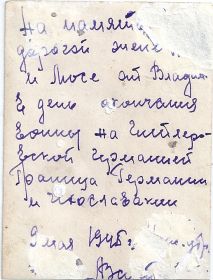 На памят
дорогой жене
и Люсе от Влади
В день окончания
Войны на Гитлеро-
вской Германией
Граница Германии
и Чехославакии
9 мая 1945 г.